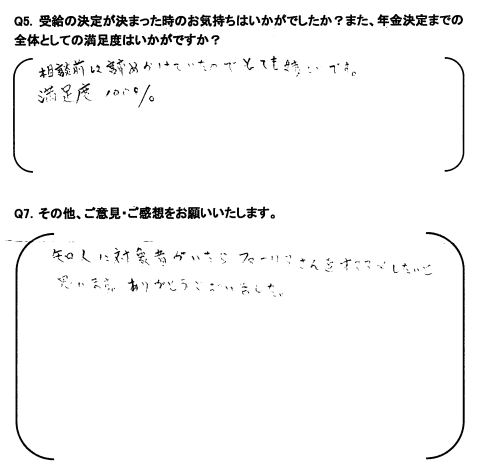 Q5. 受給の決定が決まった時のお気持ちはいかがでしたか？また、年金決定までの
全体としての満足度はいかがですか？
相談前は諦めかけていたのでとても嬉しいです。
満足度 100%
Q7. その他、ご意見・ご感想をお願いいたします。
知人に対象者がいたら さんをすすめしたいと
思います。ありがとうございました。